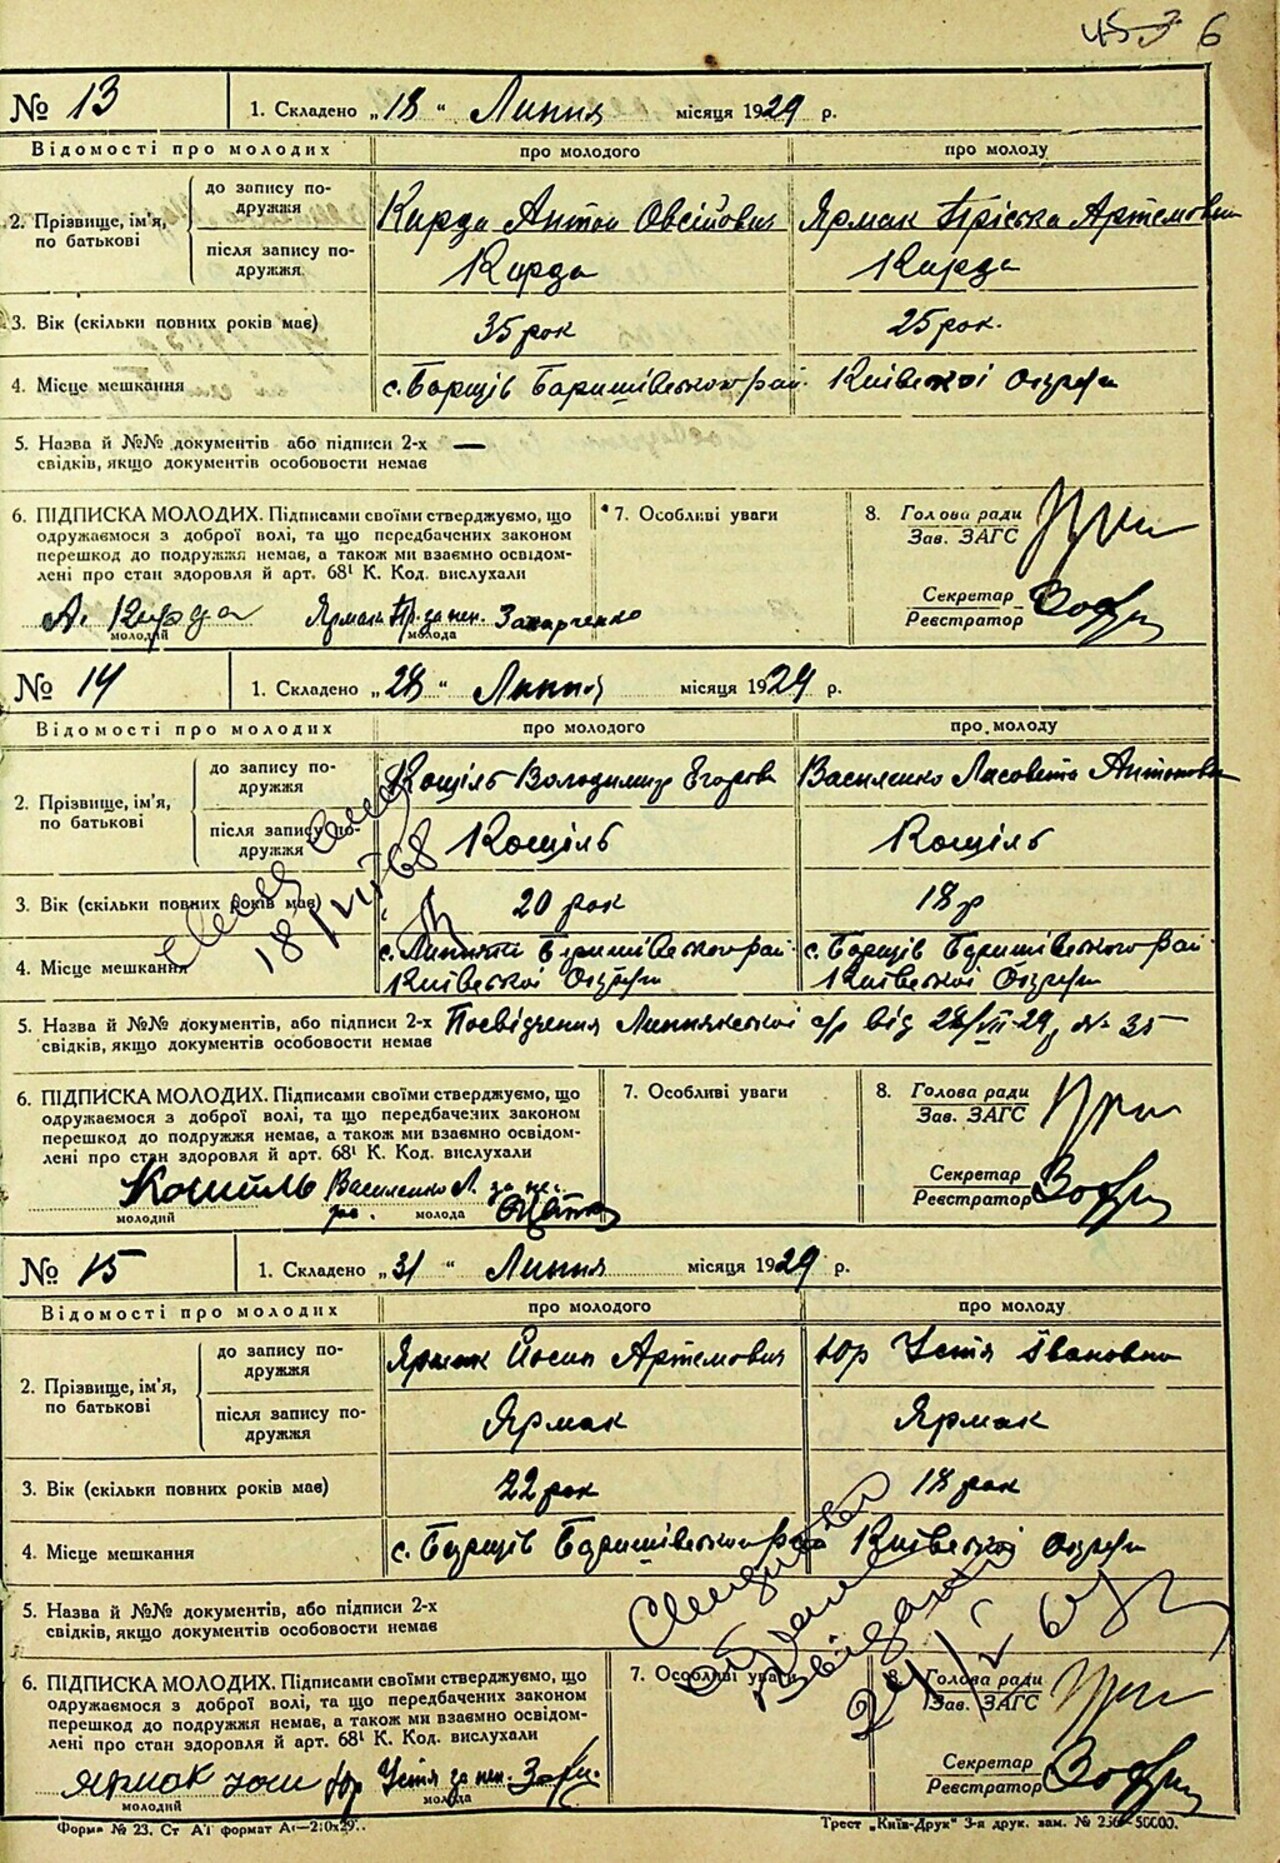 6
№ 13
1. Складено „18“ Липня місяця 1929 р.
Відомості про молодих
про молодого
про молоду
2. Прізвище, ім'я, по батькові
до запису подружжя
Кирда Антон Овсійович
Ярмак Пріська Артемовна
після запису подружжя
Кирда
Кирда
3. Вік (скільки повних років має)
35 рок
25 рок.
4. Місце мешкання
с. Борщів Баришівського рай. Київської Округи
5. Назва й №№ документів або підписи 2-х —
свідків, якщо документів особовости немає
6. ПІДПИСКА МОЛОДИХ. Підписами своїми стверджуємо, що
одружаємося з доброї волі, та що передбачених законом
перешкод до подружжя немає, а також ми взаємно освідом-
лені про стан здоров'я й арт. 68¹ К. Код. вислухали
А. Кирда
молодий
Ярмак Пр. за неп. Захарченко
молода
7. Особливі уваги
8. Голова ради
Зав. ЗАГС
Секретар
Реєстратор
№ 14
1. Складено „28“ Липня місяця 1929 р.
Відомості про молодих
про молодого
про молоду
2. Прізвище, ім'я, по батькові
до запису подружжя
Кошіль Володимир Егоров
Василенко Лисовета Антоновна
після запису подружжя
Кошіль
Кошіль
18/VII 68
3. Вік (скільки повних років має)
20 рок
18 р
4. Місце мешкання
с. Липняки Баришівського рай.
Київської Округи
с. Борщів Баришівського рай.
Київської Округи
5. Назва й №№ документів, або підписи 2-х
свідків, якщо документів особовости немає
Посвідчення Липняцької с/р від 28/VII-29 р № 35
6. ПІДПИСКА МОЛОДИХ. Підписами своїми стверджуємо, що
одружаємося з доброї волі, та що передбачених законом
перешкод до подружжя немає, а також ми взаємно освідом-
лені про стан здоров'я й арт. 68¹ К. Код. вислухали
Кошиль
молодий
Василенко Л. за не-
молода
7. Особливі уваги
8. Голова ради
Зав. ЗАГС
Секретар
Реєстратор
№ 15
1. Складено „31“ Липня місяця 1929 р.
Відомості про молодих
про молодого
про молоду
2. Прізвище, ім'я, по батькові
до запису подружжя
Ярмак Йосип Артемович
Юр Устя Івановна
після запису подружжя
Ярмак
Ярмак
3. Вік (скільки повних років має)
22 рок
18 рок
4. Місце мешкання
с. Борщів Баришівського рай Київської Округи
5. Назва й №№ документів, або підписи 2-х
свідків, якщо документів особовости немає
6. ПІДПИСКА МОЛОДИХ. Підписами своїми стверджуємо, що
одружаємося з доброї волі, та що передбачених законом
перешкод до подружжя немає, а також ми взаємно освідом-
лені про стан здоров'я й арт. 68¹ К. Код. вислухали
Ярмак
молодий
Юр Устя за неп.
молода
7. Особливі уваги
8. Голова ради
Зав. ЗАГС
Секретар
Реєстратор
Форма № 23.
Трест „Київ-Друк“ 3-я друк. зам.